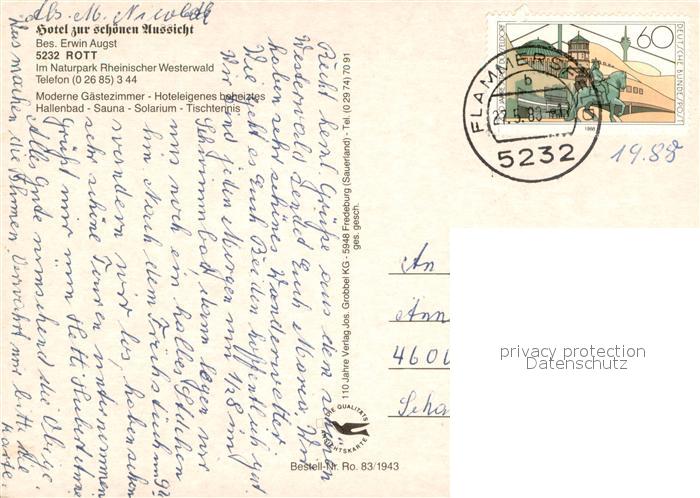 Abs. M. Nicolak
Hotel zur schönen Aussicht
Bes. Erwin Augst
5232 ROTT
Im Naturpark Rheinischer Westerwald
Telefon (0 26 85) 3 44
Moderne Gästezimmer - Hoteleigenes beheiztes
Hallenbad - Sauna - Solarium - Tischtennis
Recht herzl. Grüße aus dem schönen
Westerwald sendet Euch Maria. Wir
haben sehr schönes Wanderwetter
Wie geht es Euch Beiden hoffentlich gut.
Wir sind jeden Morgen um 1/2 8 im
Schwimmbad, dann legen wir
uns noch ein halbes Stündchen
hin. Nach dem Frühstück
wandern wir los, haben schon
sehr schöne Touren unternommen
Grüßt mir nun Hetti, Hubert
Alles Gute wünschend die Obige
Was machen die Blumen. Verwahrt mir bitte die
Karte.
110 Jahre Verlag Jos. Grobbel KG - 5948 Fredeburg (Sauerland) - Tel. (0 29 74) 70 91
ges. gesch.
DIE QUALITÄTS
ANSICHTSKARTE
Bestell-Nr. Ro. 83/1943
60
DEUTSCHE BUNDESPOST
1988
FLAMMERSFELD
b
27.5.88
5232
1988
An
Ann
4600
privacy protection
Datenschutz